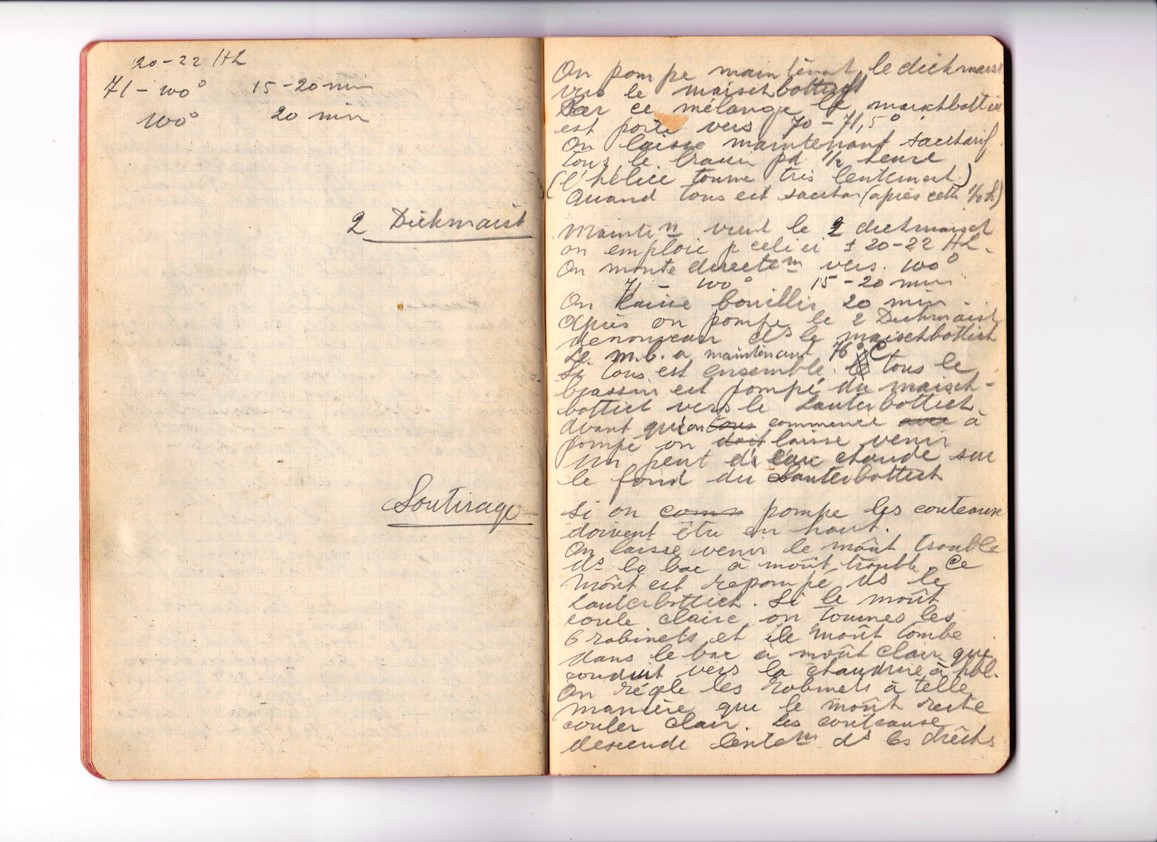 20-22 HL
71 - 100° 15-20 min
100° 20 min
2 Dickmaisch
Soutirage
On pompe maintenant le dickmais
vers le maischbottich
Par ce mélange le maischbottich
est porté vers 70-71,5°
On laisse maintenant saccharif.
tous le brassin pd ½ heure
(l'hélice tourne très lentement)
Quand tous est sacchar (après cette ½ h)
Mainten vient le 2 dickmaisch
on emploie p celui ci ± 20-22 HL.
On monte directem vers. 100°
71 - 100° 15-20 min
On laisse bouillir 20 min.
après on pompe le 2 Dickmaisch
denouveau ds le maischbottich
Le m.b. a maintenant 76° C
Si tous est ensemble tous le
brassin est pompé du maisch-
bottich vers le Lauterbottich.
Avant qu'on tous commence avec à
pompé on doit laisse venir
un peut de eau chaude sur
le fond du Lauterbottich
Si on comm pompe les couteaux
doivent être en haut.
On laisse venir le moût trouble
ds le bac à moût trouble. Ce
moût est repompé ds le
Lauterbottich. Si le moût
coule claire on tournes les
6 robinets et le moût tombe
dans le bac à moût clair que
conduit vers la chaudière à hbl.
On régle les robinets à telle
manière que le moût reste
couler clair. Les couteaux
descende lentem ds les drêchs